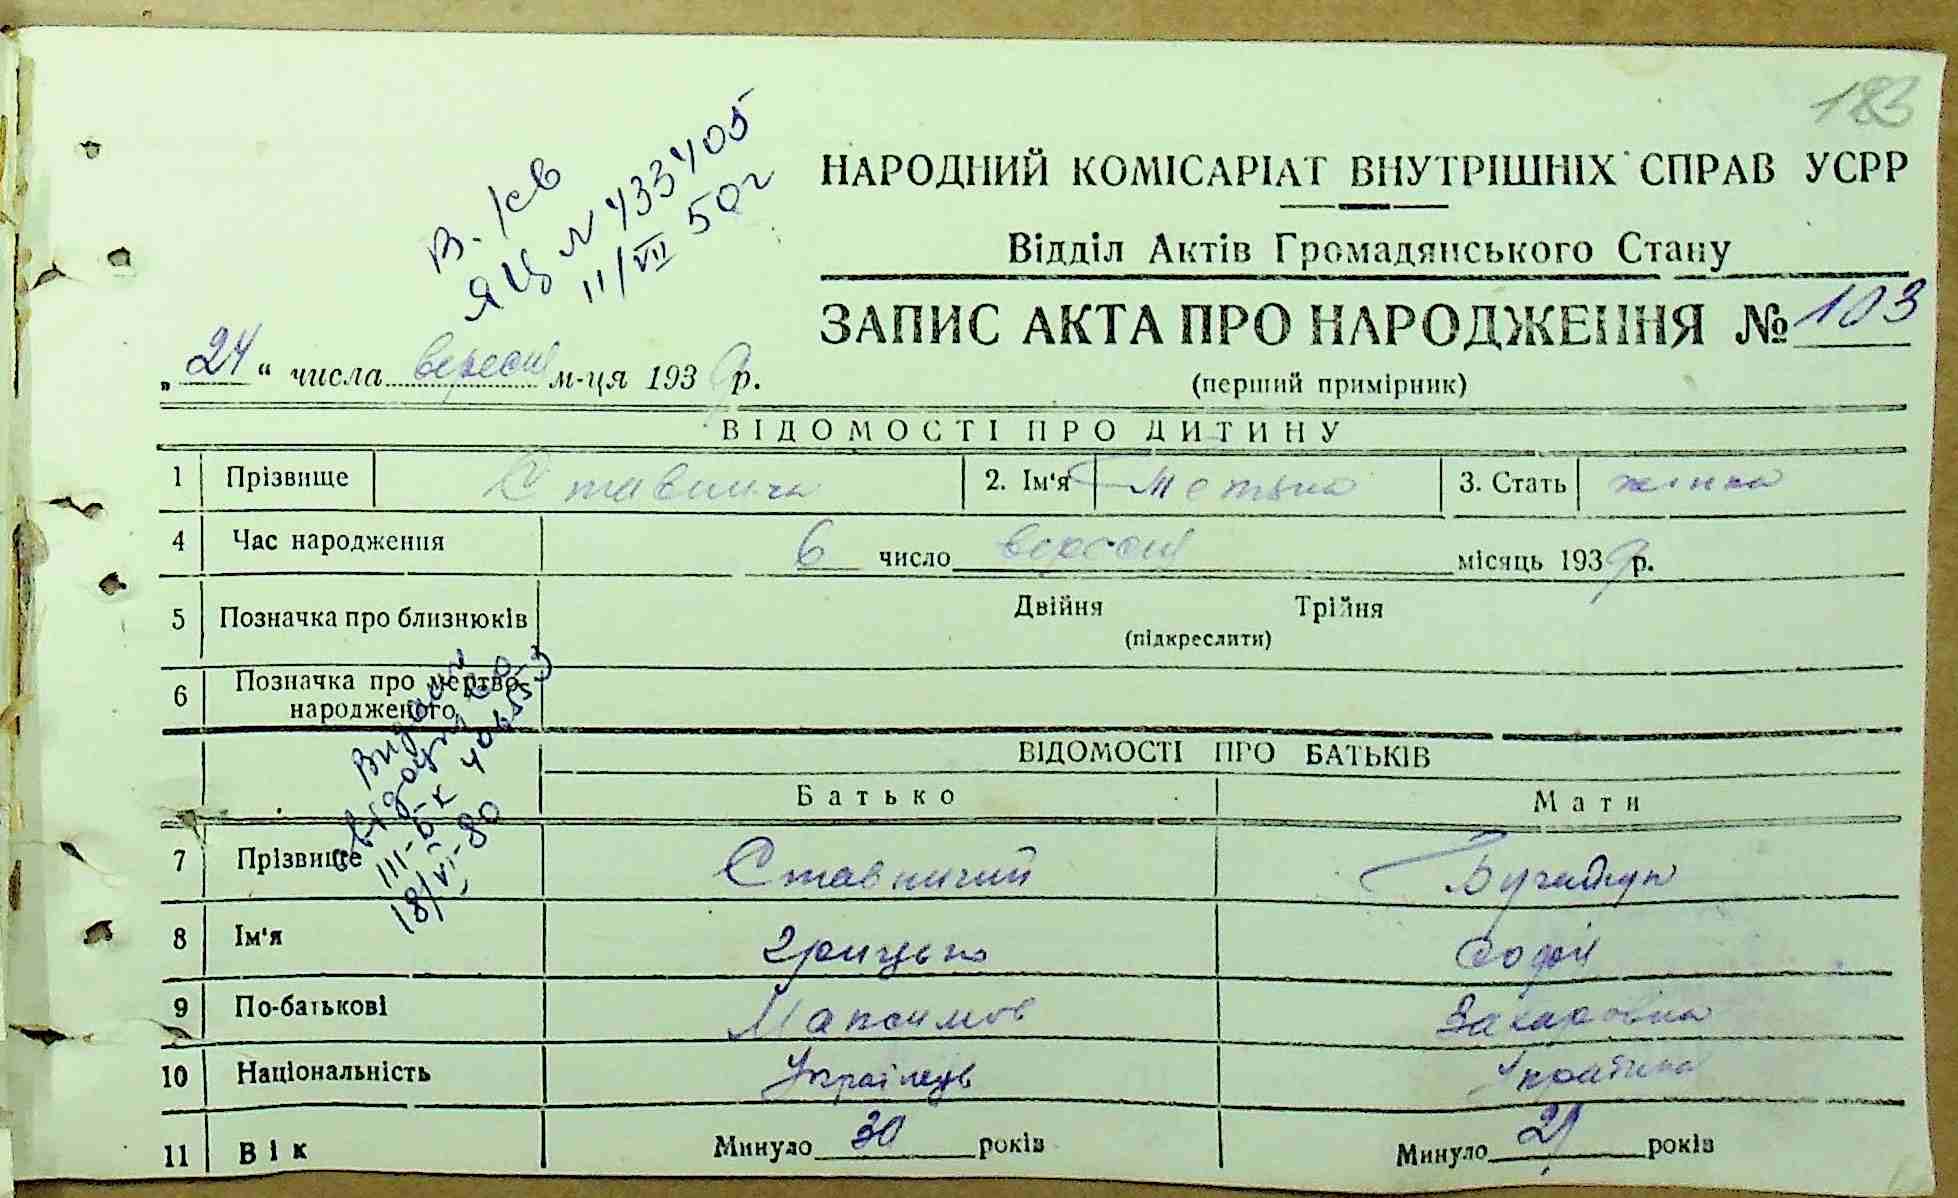 183
В. /св
ЯЦ N 433405
11/VII 50г
НАРОДНИЙ КОМІСАРІАТ ВНУТРІШНІХ СПРАВ УСРР
Відділ Актів Громадянського Стану
ЗАПИС АКТА ПРО НАРОДЖЕННЯ № 103
„ 24 “ числа вересня м-ця 1939 р.
(перший примірник)
ВІДОМОСТІ ПРО ДИТИНУ
1 Прізвище Ставнича 2. Ім'я 3. Стать жінка
4 Час народження 6 число вересня місяць 1939 р.
5 Позначка про близнюків Двійня Трійня
(підкреслити)
6 Позначка про мертво-
народженого
Видано
III-БК 406553
18/VI-80
ВІДОМОСТІ ПРО БАТЬКІВ
Батько Мати
7 Прізвище Ставничий
8 Ім'я Грицько Софія
9 По-батькові Максимов Захаровна
10 Національність Українець Українка
11 Вік Минуло 30 років Минуло 21 років